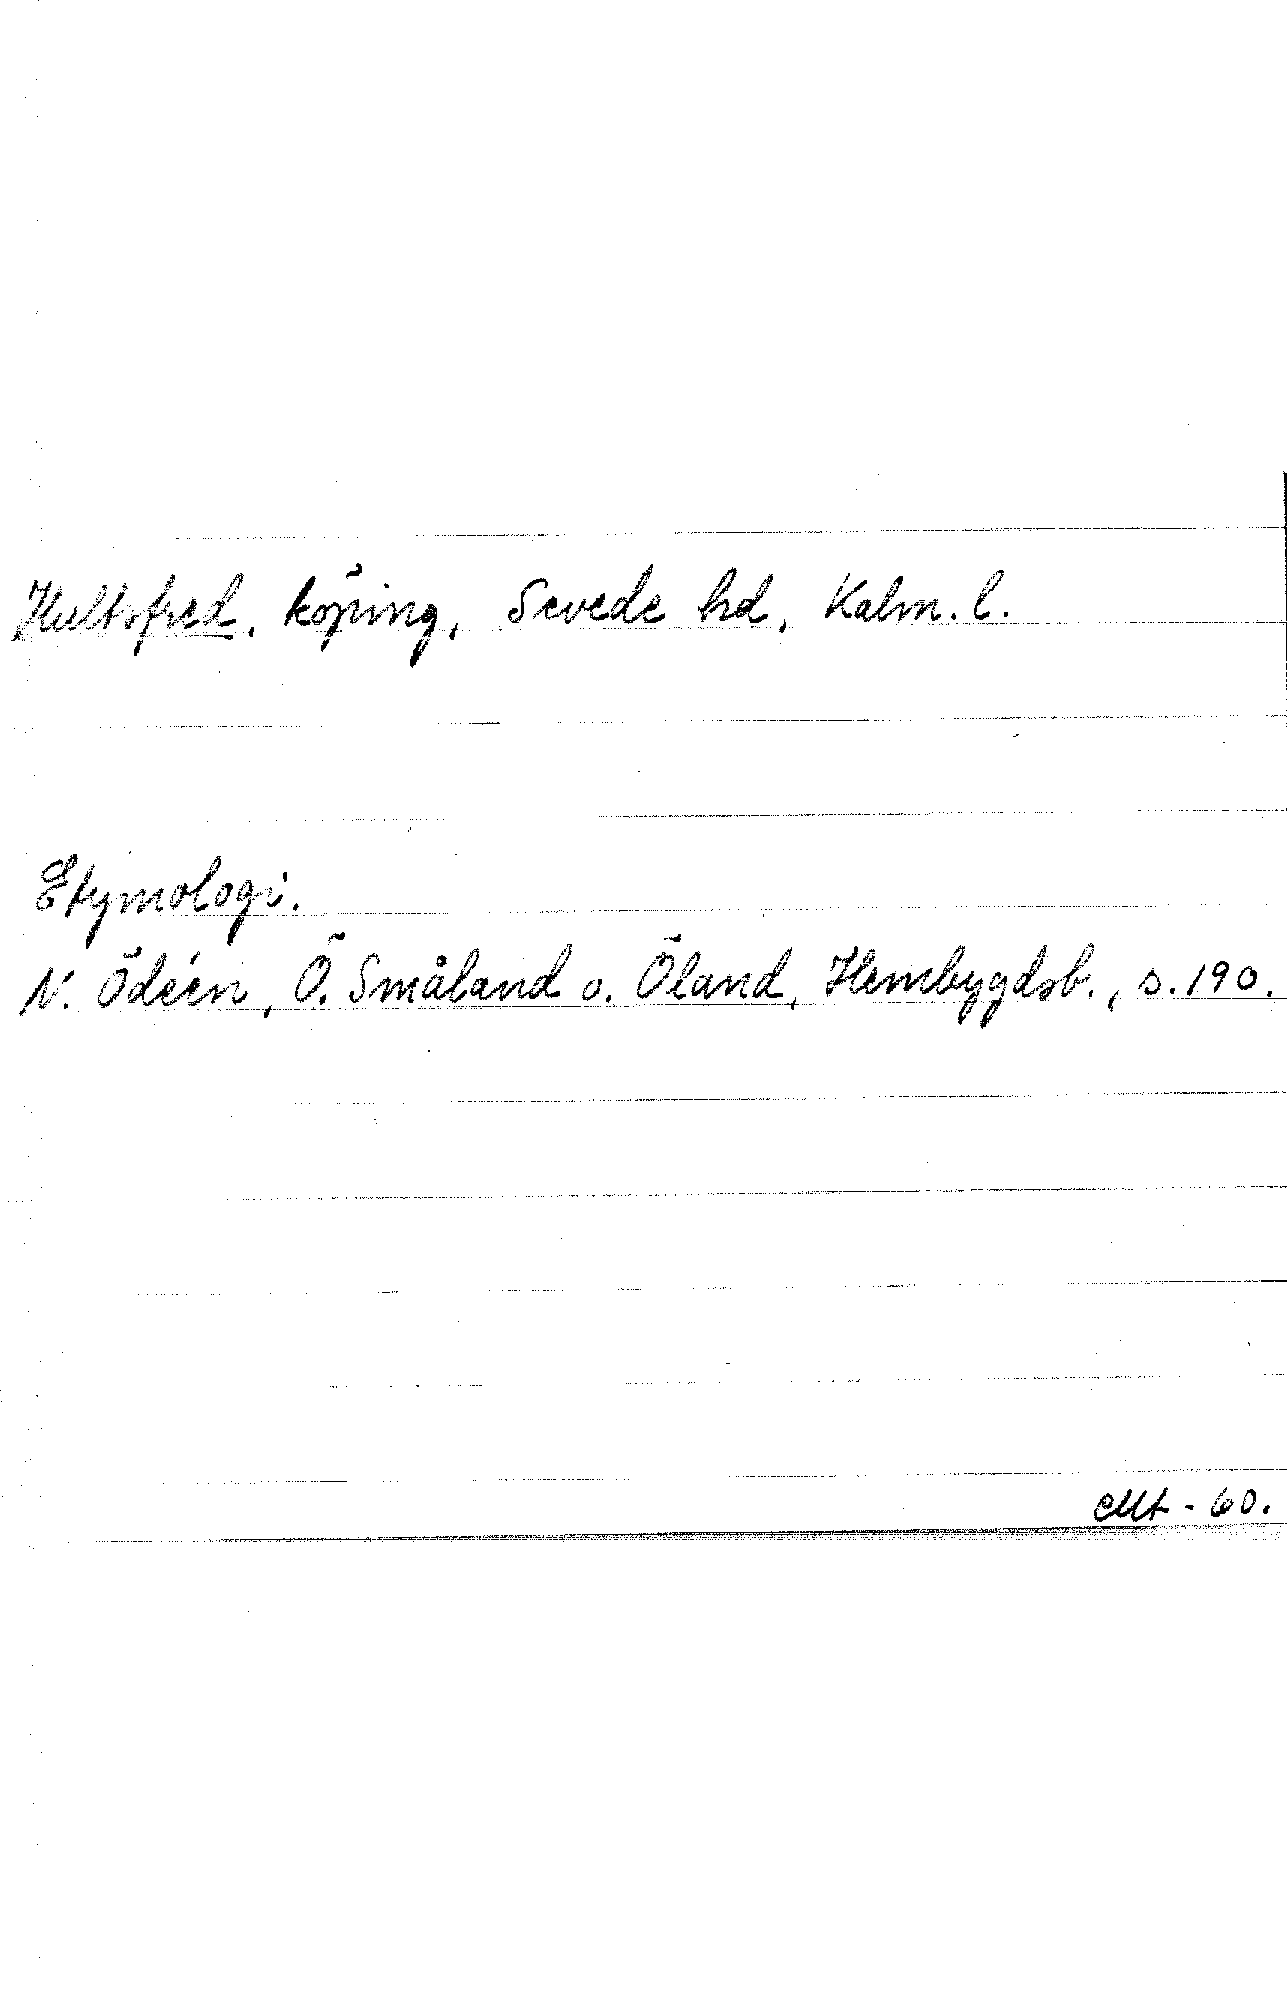 Hultsfred, köping, Sevede hd, Kalm. l.
Etymologi.
N. Ödéen, Ö. Småland o. Öland, Hembygdsb., s. 190.
-60.